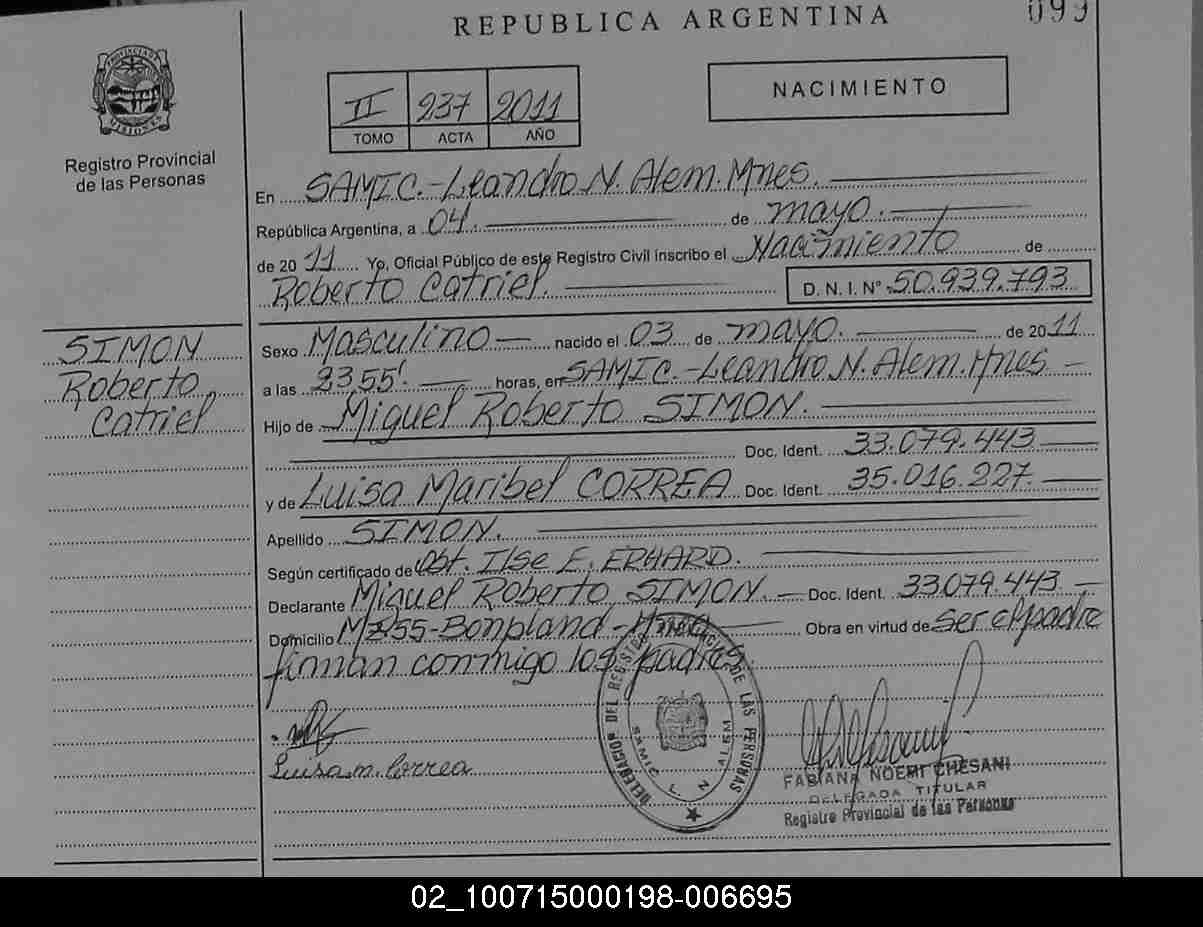 REPUBLICA ARGENTINA
099
PROVINCIA DE
MISIONES
Registro Provincial
de las Personas
II 237 2011
TOMO ACTA AÑO
NACIMIENTO
En SAMIC.-Leandro N. Alem. Mnes.
República Argentina, a 04. de mayo.
de 20 11 Yo, Oficial Público de este Registro Civil inscribo el Nacimiento de
Roberto Catriel. D. N. I. Nº 50.939.793
SIMON
Roberto
Catriel
Sexo Masculino nacido el 03 de mayo. de 2011
a las 23,55'. horas, en SAMIC.-Leandro N. Alem. Mnes
Hijo de Miguel Roberto SIMON.
Doc. Ident. 33.079.443
y de Luisa Maribel CORREA Doc. Ident. 35.016.227.
Apellido SIMON.
Según certificado de Obst. Ilse E. ERHARD.
Declarante Miguel Roberto SIMON. Doc. Ident. 33.079.443
Domicilio Mz 55-Bonpland- Obra en virtud de ser el padre
firman conmigo los padres
Luisa m. Correa
DELEGACION DEL REGISTRO PROVINCIAL DE LAS PERSONAS
SAMIC L. N. ALEM
FABIANA NOEMI CHESANI
DELEGADA TITULAR
Registro Provincial de las Personas
02_100715000198-006695